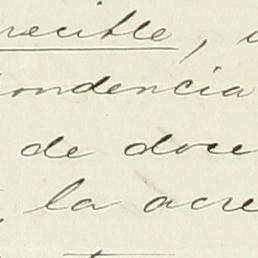 recible, 
ondencia
de doce
la acre